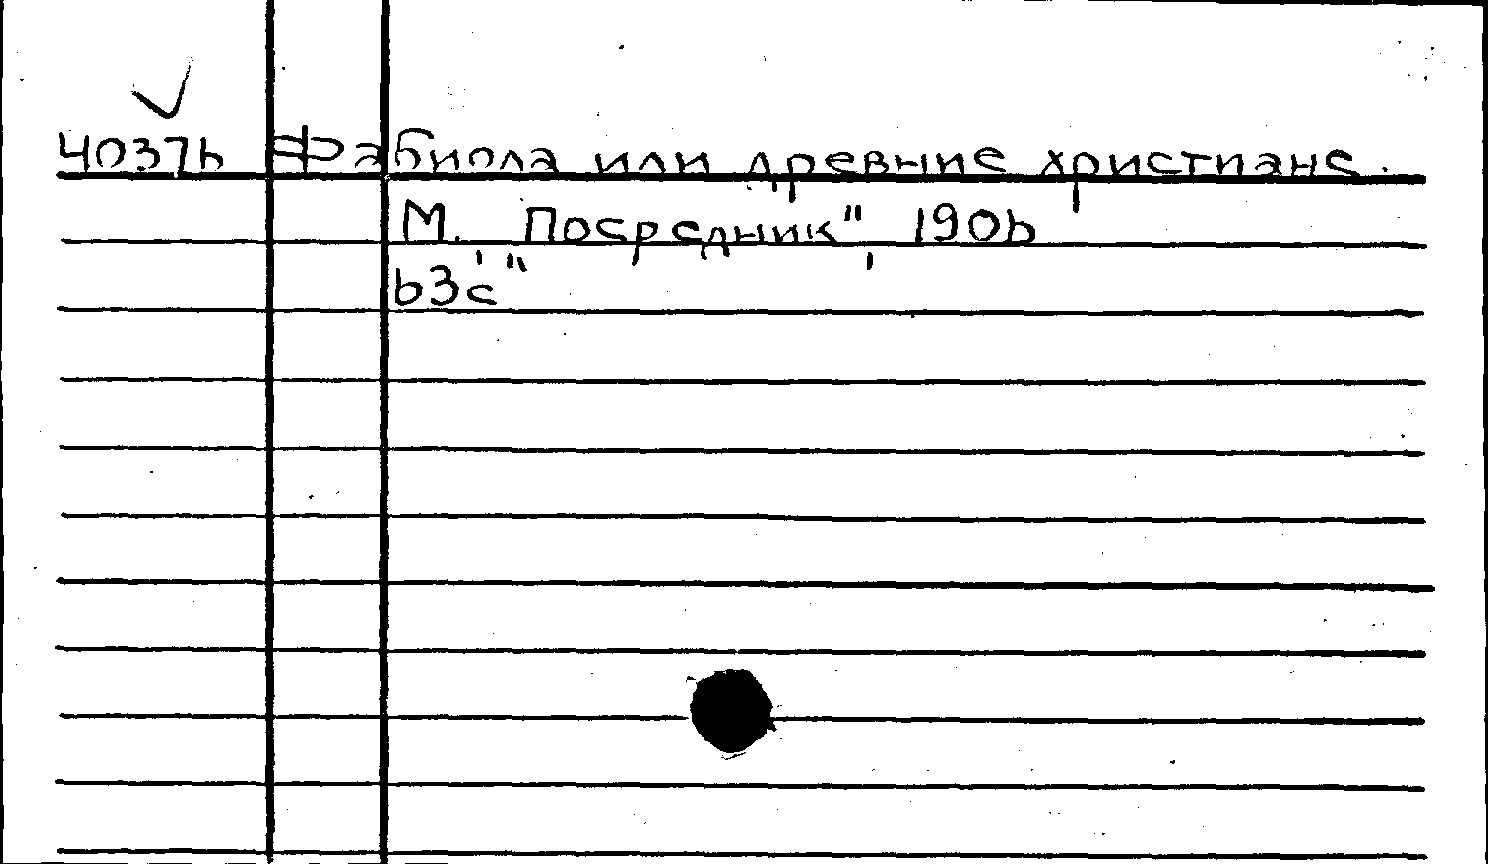 40376 Фабиола или древние христиане.
М. "Посредник" 1906
63с